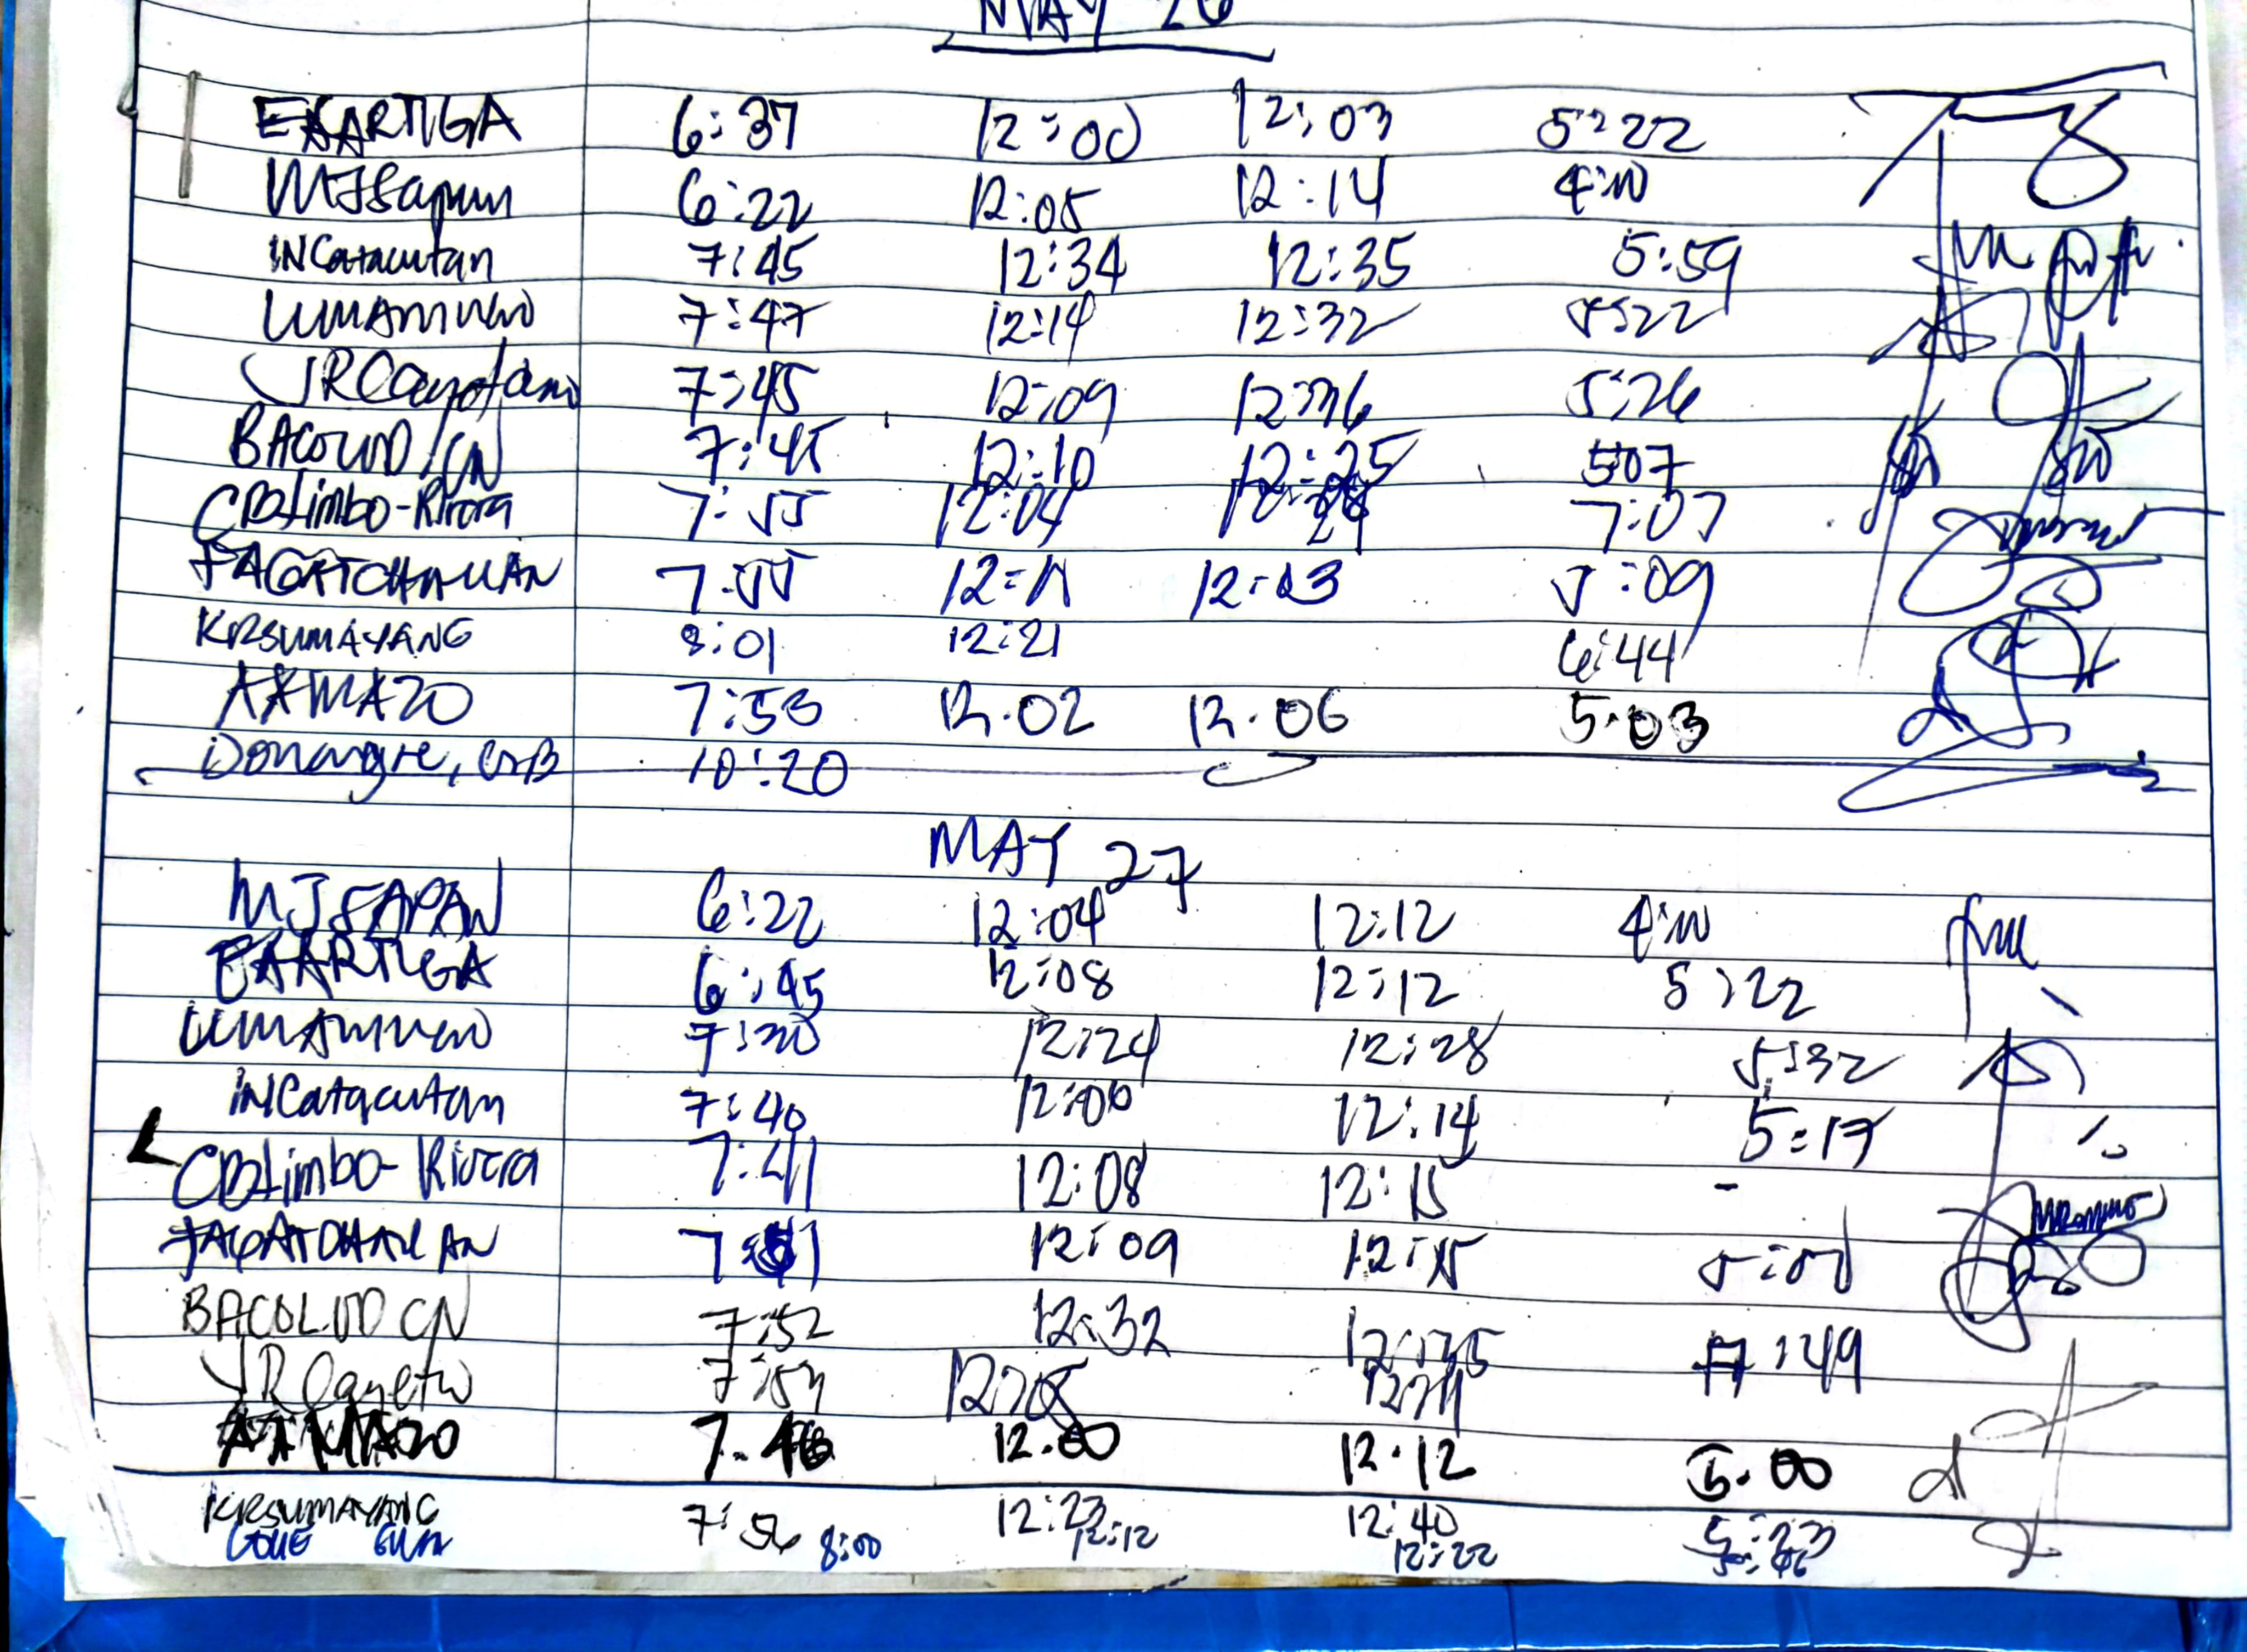 MAY 26
EAARTIGA 6:37 12:00 12:03 5:22
MJSapan 6:22 12:05 12:14 4:10
INCatacutan 7:45 12:34 12:35 5:59
7:47 12:14 12:32 5:22
JRCayetano 7:45 12:09 12:36 5:26
BACOLOD CN 7:45 12:10 12:25 507
CDLimbo-Rivera 7:55 12:04 7:07
JAGATCHALIAN 7:55 12:11 12:13 5:09
KRSUMAYANG 8:01 12:21 6:44
MAZO 7:53 12.02 12.06 5.03
10:20
MAY 27
MJ SAPAN 6:22 12:04 12:12 4:10
EAARTIGA 6:45 12:08 12:12 5:22
7:30 12:24 12:28 5:32
INCatacutan 7:40 12:00 12:14 5:17
CDLimbo-Rivera 7:41 12:08 12:15 -
JAGATCHALIAN 12:09 12:15
BACOLOD CN 7:52 12:32 12:35 :49
JR Cayetano
MAZO 7.46 12.00 12.12 5.00
KRSUMAYANG 7:56 12:23 12:40 5:23
8:00 12:12 12:22 5:46